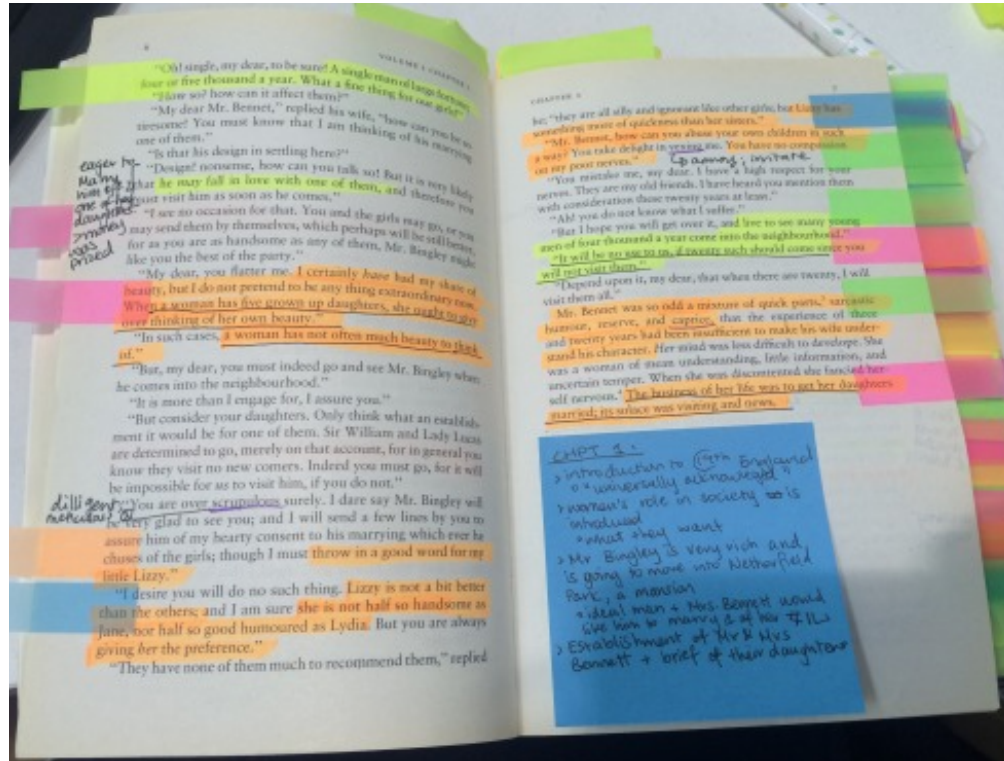 VOLUME I CHAPTER
"Oh! single, my dear, to be sure! A single man of large fortune;
four or five thousand a year. What a fine thing for our girls!"
"How so? how can it affect them?"
"My dear Mr. Bennet," replied his wife, "how can you be so
tiresome! You must know that I am thinking of his marrying
one of them."
"Is that his design in settling here?"
"Design! nonsense, how can you talk so! But it is very likely
that he may fall in love with one of them, and therefore you
must visit him as soon as he comes."
"I see no occasion for that. You and the girls may go, or you
may send them by themselves, which perhaps will be still better,
for as you are as handsome as any of them, Mr. Bingley might
like you the best of the party."
"My dear, you flatter me. I certainly have had my share of
beauty, but I do not pretend to be any thing extraordinary now.
When a woman has five grown up daughters, she ought to give
over thinking of her own beauty."
"In such cases, a woman has not often much beauty to think
of."
"But, my dear, you must indeed go and see Mr. Bingley when
he comes into the neighbourhood."
"It is more than I engage for, I assure you."
"But consider your daughters. Only think what an establish-
ment it would be for one of them. Sir William and Lady Lucas
are determined to go, merely on that account, for in general you
know they visit no new comers. Indeed you must go, for it will
be impossible for us to visit him, if you do not."
"You are over scrupulous surely. I dare say Mr. Bingley will
be very glad to see you; and I will send a few lines by you to
assure him of my hearty consent to his marrying which ever he
chuses of the girls; though I must throw in a good word for my
little Lizzy."
"I desire you will do no such thing. Lizzy is not a bit better
than the others; and I am sure she is not half so handsome as
Jane, nor half so good humoured as Lydia. But you are always
giving her the preference."
"They have none of them much to recommend them," replied
eager to
marry
him off to
one of her
daughters
> money
was
prized
dilligent
meticulous
CHAPTER
he; "they are all silly and ignorant like other girls; but Lizzy has
something more of quickness than her sisters."
"Mr. Bennet, how can you abuse your own children in such
a way? You take delight in vexing me. You have no compassion
on my poor nerves."
annoy, irritate
"You mistake me, my dear. I have a high respect for your
nerves. They are my old friends. I have heard you mention them
with consideration these twenty years at least."
"Ah! you do not know what I suffer."
"But I hope you will get over it, and live to see many young
men of four thousand a year come into the neighbourhood."
"It will be no use to us, if twenty such should come since you
will not visit them."
"Depend upon it, my dear, that when there are twenty, I will
visit them all."
Mr. Bennet was so odd a mixture of quick parts, sarcastic
humour, reserve, and caprice, that the experience of three
and twenty years had been insufficient to make his wife under-
stand his character. Her mind was less difficult to develope. She
was a woman of mean understanding, little information, and
uncertain temper. When she was discontented she fancied her-
self nervous. The business of her life was to get her daughters
married; its solace was visiting and news.
CHPT 1:
> introduction to 19th England
"universally acknowledged"
> women's role in society is
introduced
* what they want
> Mr Bingley is very rich and
is going to move into Netherfield
Park, a mansion
* ideal man + Mrs. Bennett would
like him to marry 1 of her
> Establishment of Mr & Mrs
Bennett + brief of their daughters